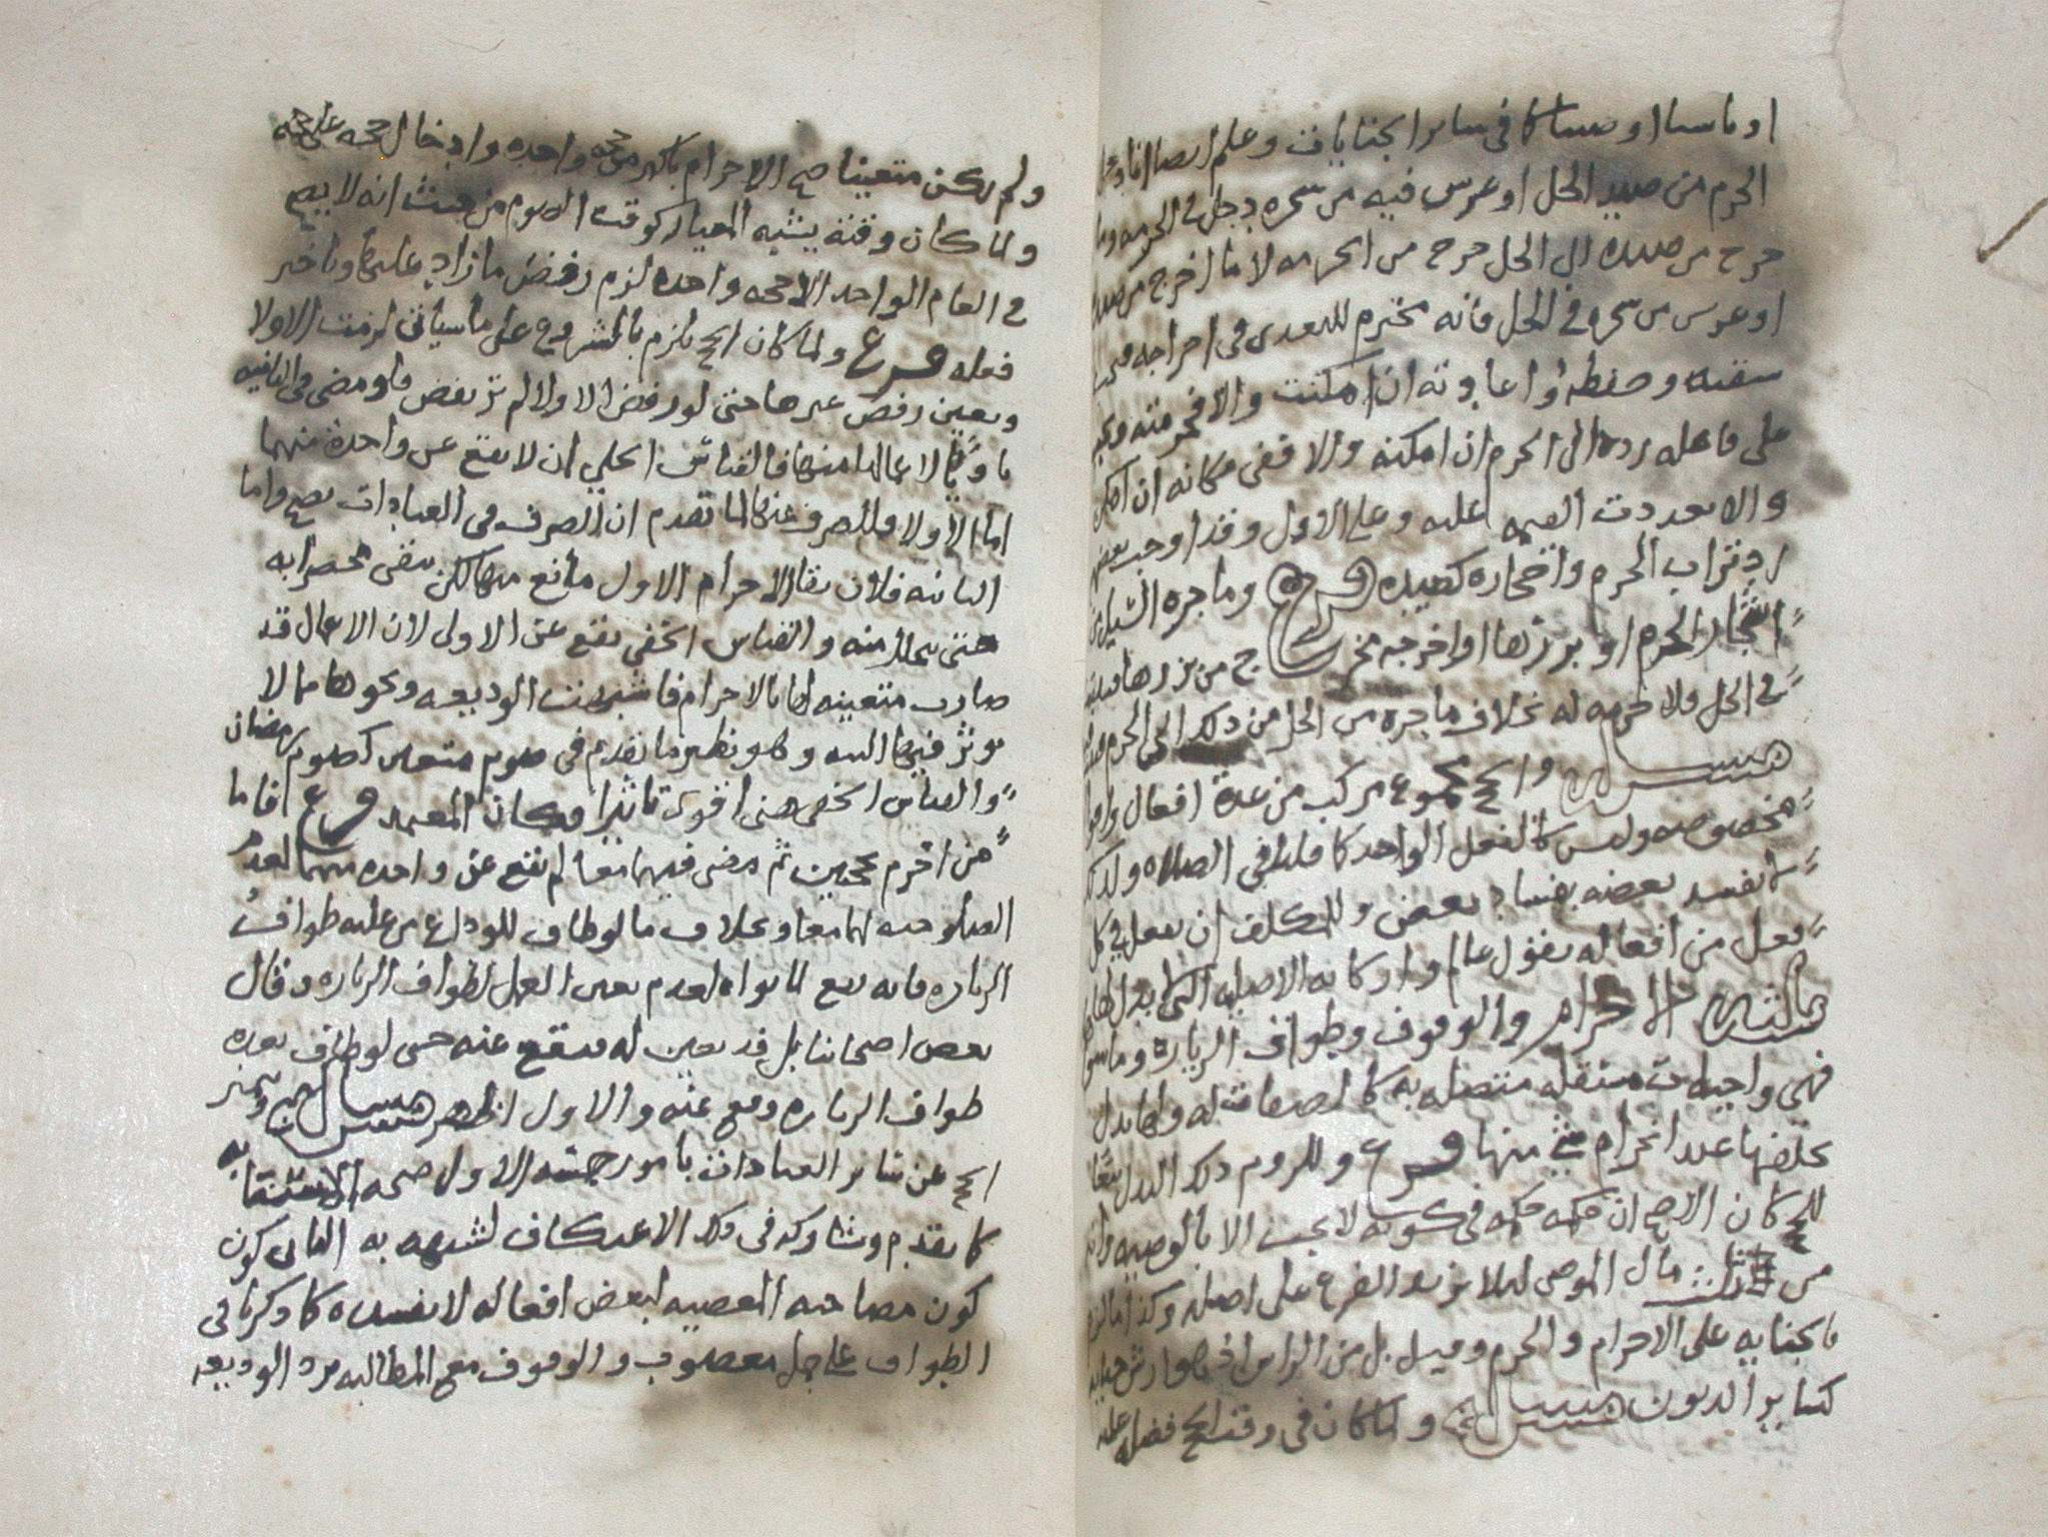 او ناسيا او صبيا كما في سائر الجنايات وعلم ايضا ان ما دخل
الحرم من صيد الحل او غرس فيه من شجره دخل في الحرمه وما
خرج من صيده الى الحل خرج من الحرمه لا ما اخرج من صيده
او غرس من شجره في الحل فانه محترم للتعدي في اخراجه فيجب
سقيه وحفظه واعادته ان امكنت والا فحرمته
على فاعله رده الى الحرم ان امكنه والا ففي مكانه ان امكن
والا تعددت القيمه عليه وعلى الاول وقد اوجب بعضهم
رد تراب الحرم واحجاره كصيده فرع وما جره السيل من
اشجار الحرم او بزرها او اخرجه مخرج من بزرها
في الحل ولا حرمه له بخلاف ما جره من الحل من ذلك الى الحرم
مسئله والحج مجموع مركب من عدة افعال
مخصوصه وليس كالفعل الواحد كما قلنا في الصلاه ولذلك
لا يفسد بعضه بفساد بعض وللمكلف ان يعمل في كل
فعل من افعاله بقول عالم واركانه الاصليه التي لا بدل لها
ثلاثه الاحرام والوقوف وطواف الزياره وما سوى
فهي واجبات مستقله متصله به كالصفات له ولها بدل
يخلفها عند انخرام شي منها فرع وللزوم ذلك البدل تبعا
للحج كان الاصح ان حكمه حكمه في كونه لا يجب الا بالوصيه
من ثلث مال الموصي ليلا يزيد الفرع على اصله وكذا ما لزم
بالجنايه على الاحرام والحرم وقيل بل من الراس اذ هو ارش جنايه
كسائر الديون مسئله ولما كان في وقت الحج فضله عليه
ولم يكن متعينا صح الاحرام باكثر من حجه واحده وادخال حجه على حجه
ولما كان وقته يشبه المعيار كوقت الصوم من حيث انه لا يصح
في العام الواحد الا حجه واحده لزم رفض ما زاد عليها وتاخير
فعله فرع ولما كان الحج يلزم بالشروع على ما سياتي لزمت الاولا
وتعين رفض غيرها حتى لو رفض الاولا لم ترتفض فلو مضى في الثانيه
ناويا لاعمالها منها فالقياس الجلي ان لا يقع عن واحدة منهما
اما الاولا فللصرف عنها لما تقدم ان الصرف في العبادات يصح واما
الثانيه فلان بقا الاحرام الاول مانع منها لكن يبقى محصرا به
حتى يتحلل منه والقياس الخفي يقع عن الاولى لان الاعمال قد
صارت متعينه لها بالاحرام فاشبهت الوديعه ونحوها مما لا
يوثر فيها النيه وهو نظير ما تقدم في صوم متعين كصوم رمضان
والقياس الخفي هنى اقوى تاثيرا فكان المعتمد فرع اما ما
من احرم بحجتين ثم مضى فيهما معا لم تقع عن واحده منهما لعدم
الصلوحيه لهما معا وبخلاف ما لو طاف للوداع من عليه طواف
الزياره فانه يقع لما نواه لعدم تعين العمل لطواف الزياره وقال
بعض اصحابنا بل قد تعين له فيقع عنه حتى لو طاف بعده
طواف الزياره وقع عنه والاول اظهر مسئله ويتميز
الحج عن سائر العبادات بامور خمسه الاول صحه الاستنابه
كما تقدم وشاركه في ذلك الاعتكاف لشبهه به الثاني كون
كون مصاحبه المعصيه لبعض افعاله لا يفسده كما ذكرنا في
الطواف على جمل مغصوب والوقوف مع المطالبه برد الوديعه